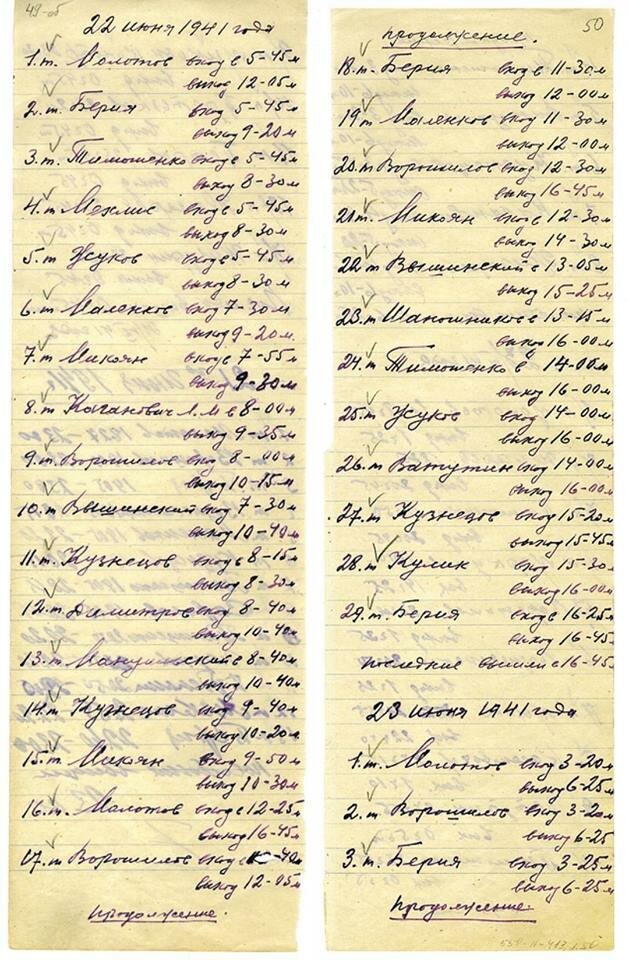 49-об
22 июня 1941 года
1. т. Молотов вход в 5-45м
выход 12-05м
2. т. Берия вход 5-45м
выход 9-20м
3. т. Тимошенко вход в 5-45м
выход 8-30м
4. т. Мехлис вход в 5-45м
выход 8-30м
5. т. Жуков вход в 5-45м
выход 8-30м
6. т. Маленков вход 7-30м
выход 9-20м.
7. т. Микоян вход в 7-55м
выход 9-30м
8. т. Каганович Л.М в 8-00м
выход 9-35м
9. т. Ворошилов вход 8-00м
выход 10-15м
10. т. Вышинский вход 7-30м
выход 10-40м
11. т. Кузнецов вход в 8-15м
выход 8-30м
12. т. Димитров вход 8-40м
выход 10-40м
13. т. Мануильский в 8-40м
выход 10-40м
14. т. Кузнецов вход 9-40м
выход 10-20м
15. т. Микоян вход 9-50м
выход 10-30м
16. т. Молотов вход в 12-25м
выход 16-45м
17. т Ворошилов вход в -40м
выход 12-05м
продолжение.
50
продолжение.
18. т. Берия вход в 11-30м
выход 12-00м
19 т Маленков вход 11-30м
выход 12-00м
20. т Ворошилов вход 12-30м
выход 16-45м
21 т. Микоян вход в 12-30м
выход 14-30м
22 т Вышинский в 13-05м
выход 15-25м
23. т Шапошников в 13-15м
выход 16-00м
24. т Тимошенко в 14-00м
выход 16-00м
25. т Жуков вход 14-00м
выход 16-00м
26. т Ватутин вход 14-00м
выход 16-00м
27. т Кузнецов вход 15-20м
выход 15-45м
28. т Кулик вход 15-30м
выход 16-00м
29. т. Берия вход 16-25м
выход 16-45м
последние вышли в 16-45м
23 июня 1941 года
1. т. Молотов вход 3-20м
выход 6-25м
2. т Ворошилов вход 3-20м
выход 6-25
3. т. Берия вход 3-25м
выход 6-25м
продолжение.